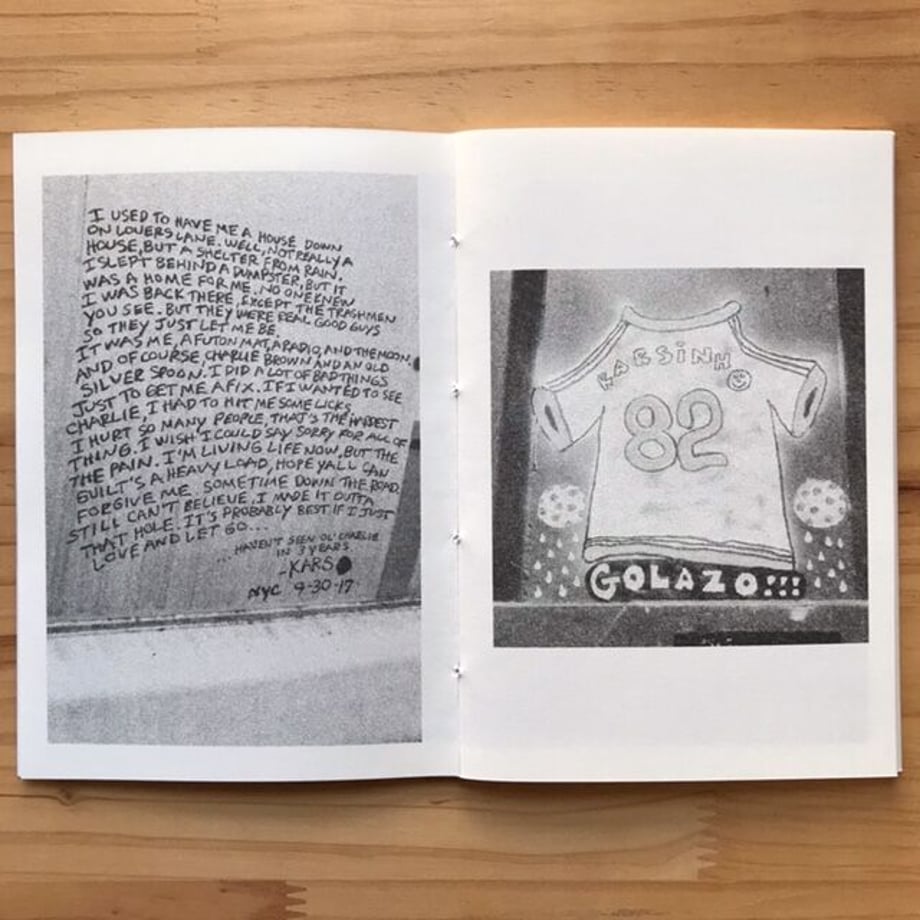 I USED TO HAVE ME A HOUSE DOWN
ON LOVERS LANE. WELL, NOT REALLY A
HOUSE, BUT A SHELTER FROM RAIN.
I SLEPT BEHIND A DUMPSTER, BUT IT
WAS A HOME FOR ME. NO ONE KNEW
I WAS BACK THERE, EXCEPT THE TRASHMEN
YOU SEE. BUT THEY WERE REAL GOOD GUYS
SO THEY JUST LET ME BE.
IT WAS ME, A FUTON MAT, A RADIO, AND THE MOON.
AND OF COURSE, CHARLIE BROWN AND AN OLD
SILVER SPOON. I DID A LOT OF BAD THINGS
JUST TO GET ME A FIX. IF I WANTED TO SEE
CHARLIE, I HAD TO HIT ME SOME LICKS.
I HURT SO MANY PEOPLE, THAT'S THE HARDEST
THING. I WISH I COULD SAY SORRY FOR ALL OF
THE PAIN. I'M LIVING LIFE NOW, BUT THE
GUILT'S A HEAVY LOAD, HOPE YALL CAN
FORGIVE ME. SOMETIME DOWN THE ROAD.
STILL CAN'T BELIEVE, I MADE IT OUTTA
THAT HOLE. IT'S PROBABLY BEST IF I JUST
LOVE AND LET GO...
...HAVEN'T SEEN OL' CHARLIE
IN 3 YEARS
-KARS
NYC 9-30-17
KARSINH
82
GOLAZO!!!